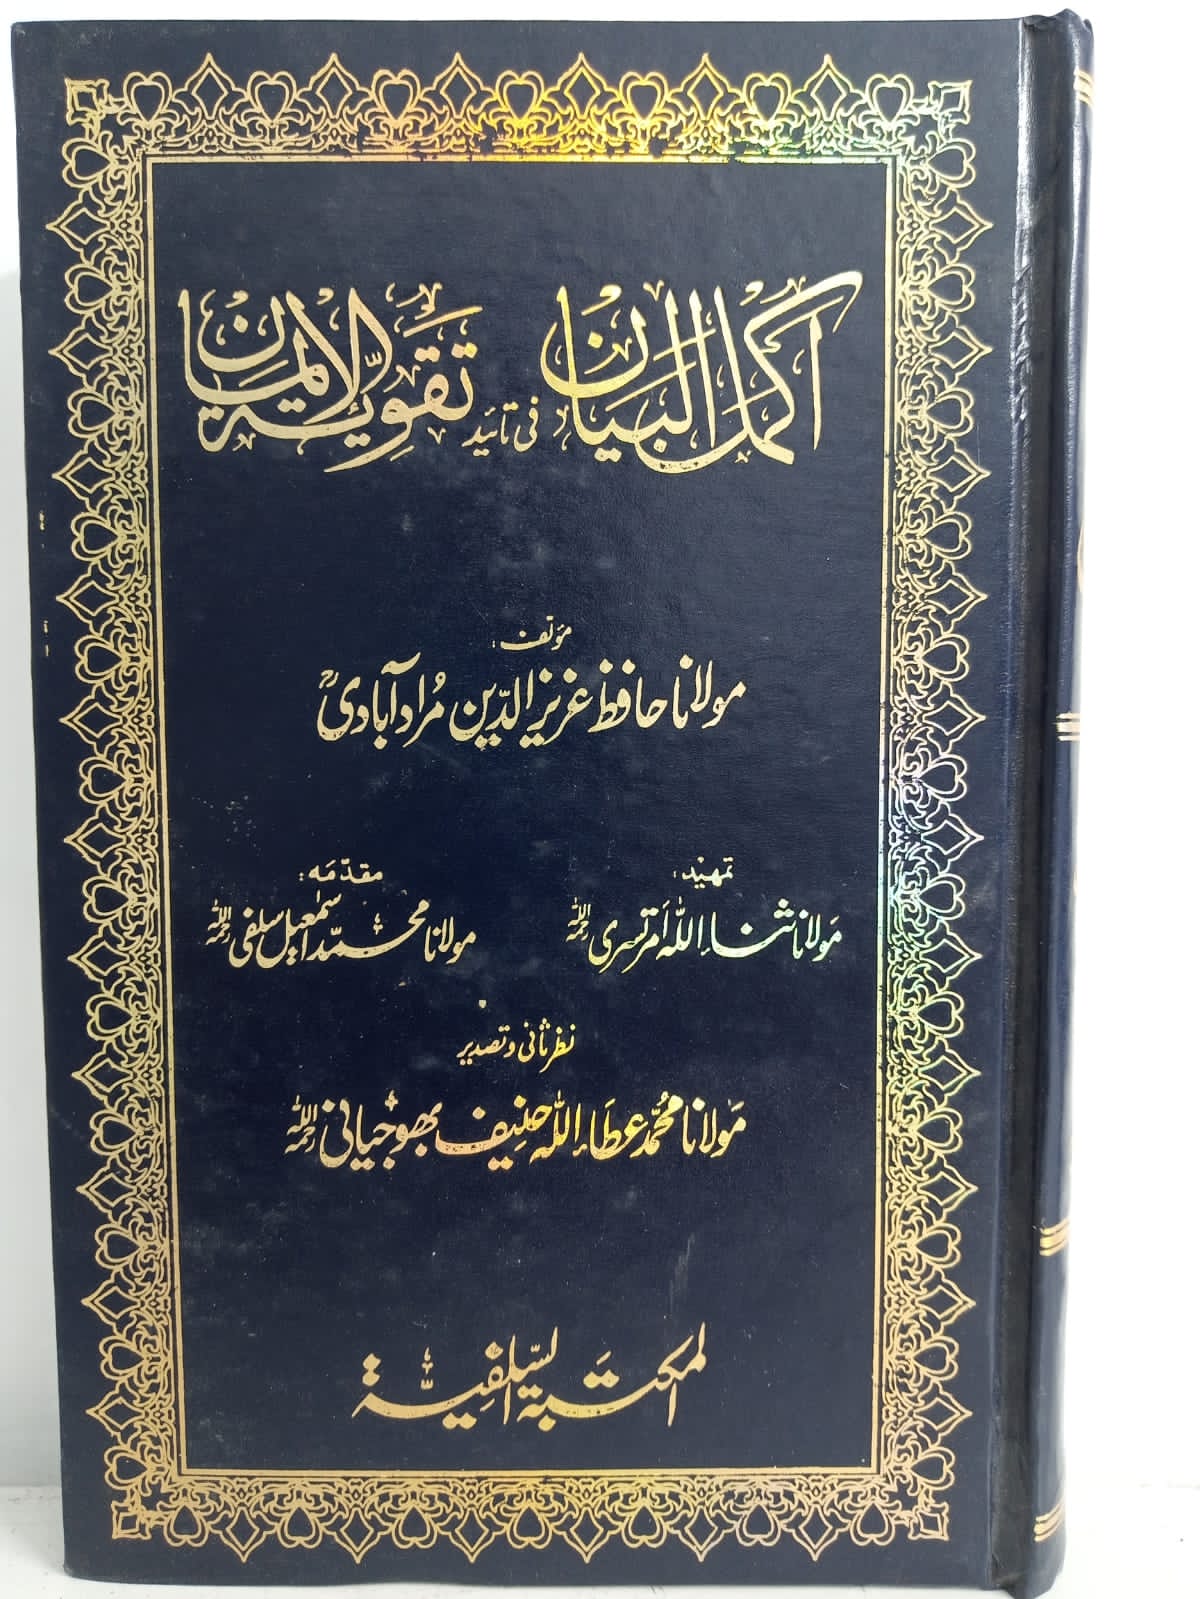 اکمل البیان فی تائید تقویۃ الایمان
مؤلف:
مولانا حافظ عزیز الدین مُراد آبادیؒ
تمہید:
مولانا ثناء اللہ امرتسری رحمہ اللہ
مقدّمہ:
مولانا محمّد اسمٰعیل سلفی رحمہ اللہ
نظر ثانی و تصدیر
مولانا محمّد عطاء اللہ حنیف بھوجیانی رحمہ اللہ
المکتبۃ السّلفیّۃ